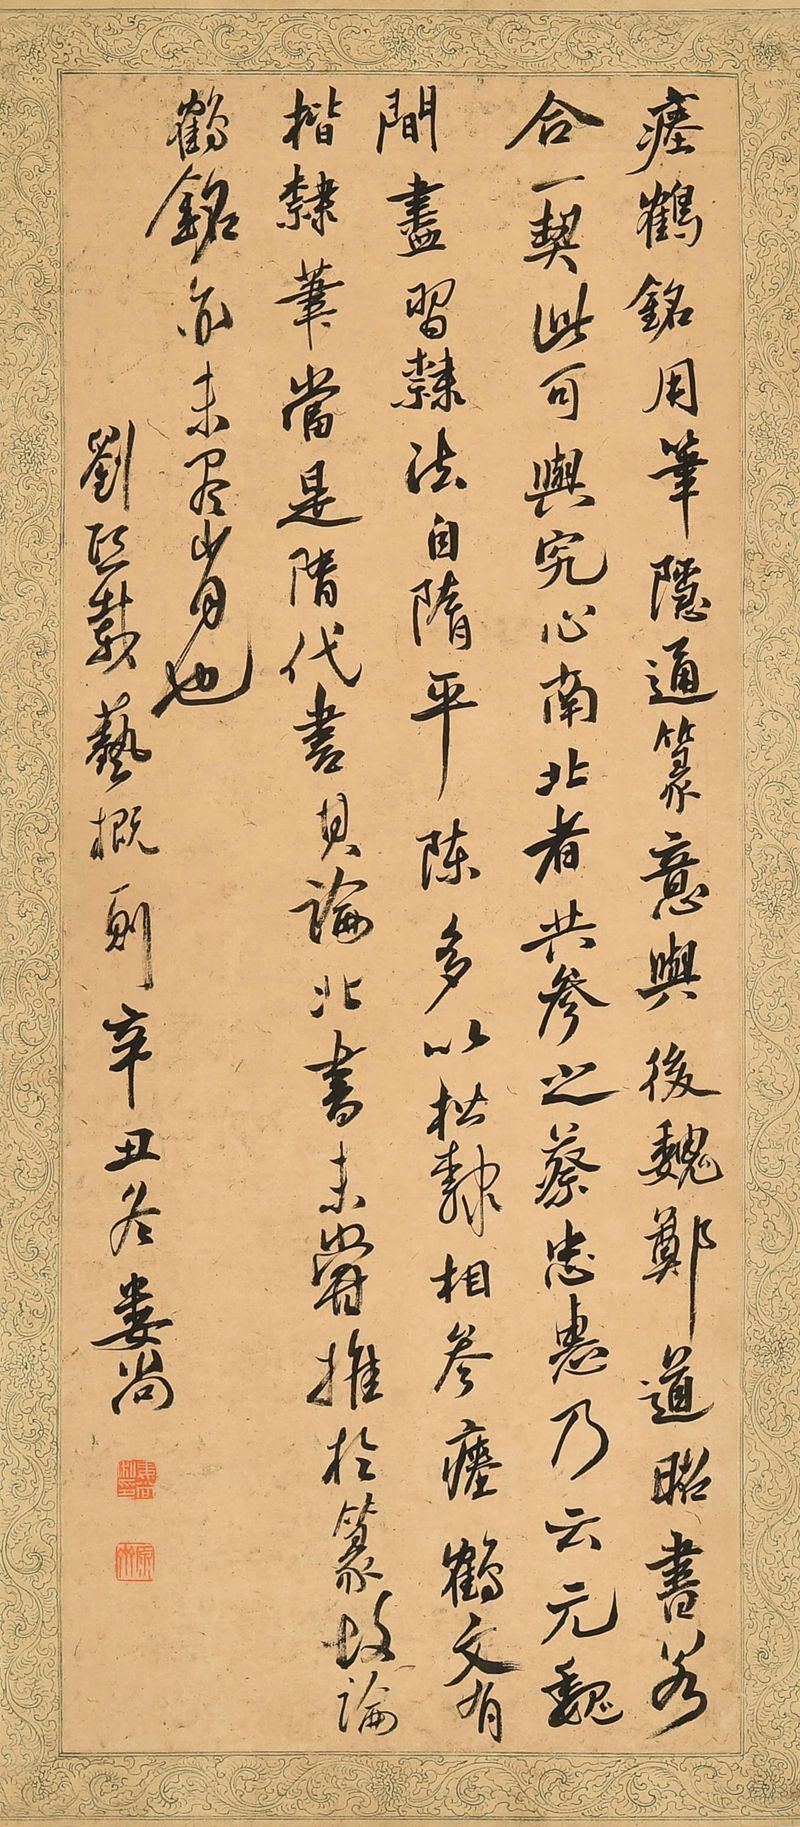 瘞鶴銘用筆隱通篆意與後魏鄭道昭書若
合一契此可與究心南北者共參之蔡忠惠乃云元魏
間盡習隸法自隋平陳多以楷隸相參瘞鶴文有
楷隸筆當是隋代書其論北書未嘗推於篆故論
鶴銘亦未盡肖也
劉熙載藝概則辛丑冬婁尚